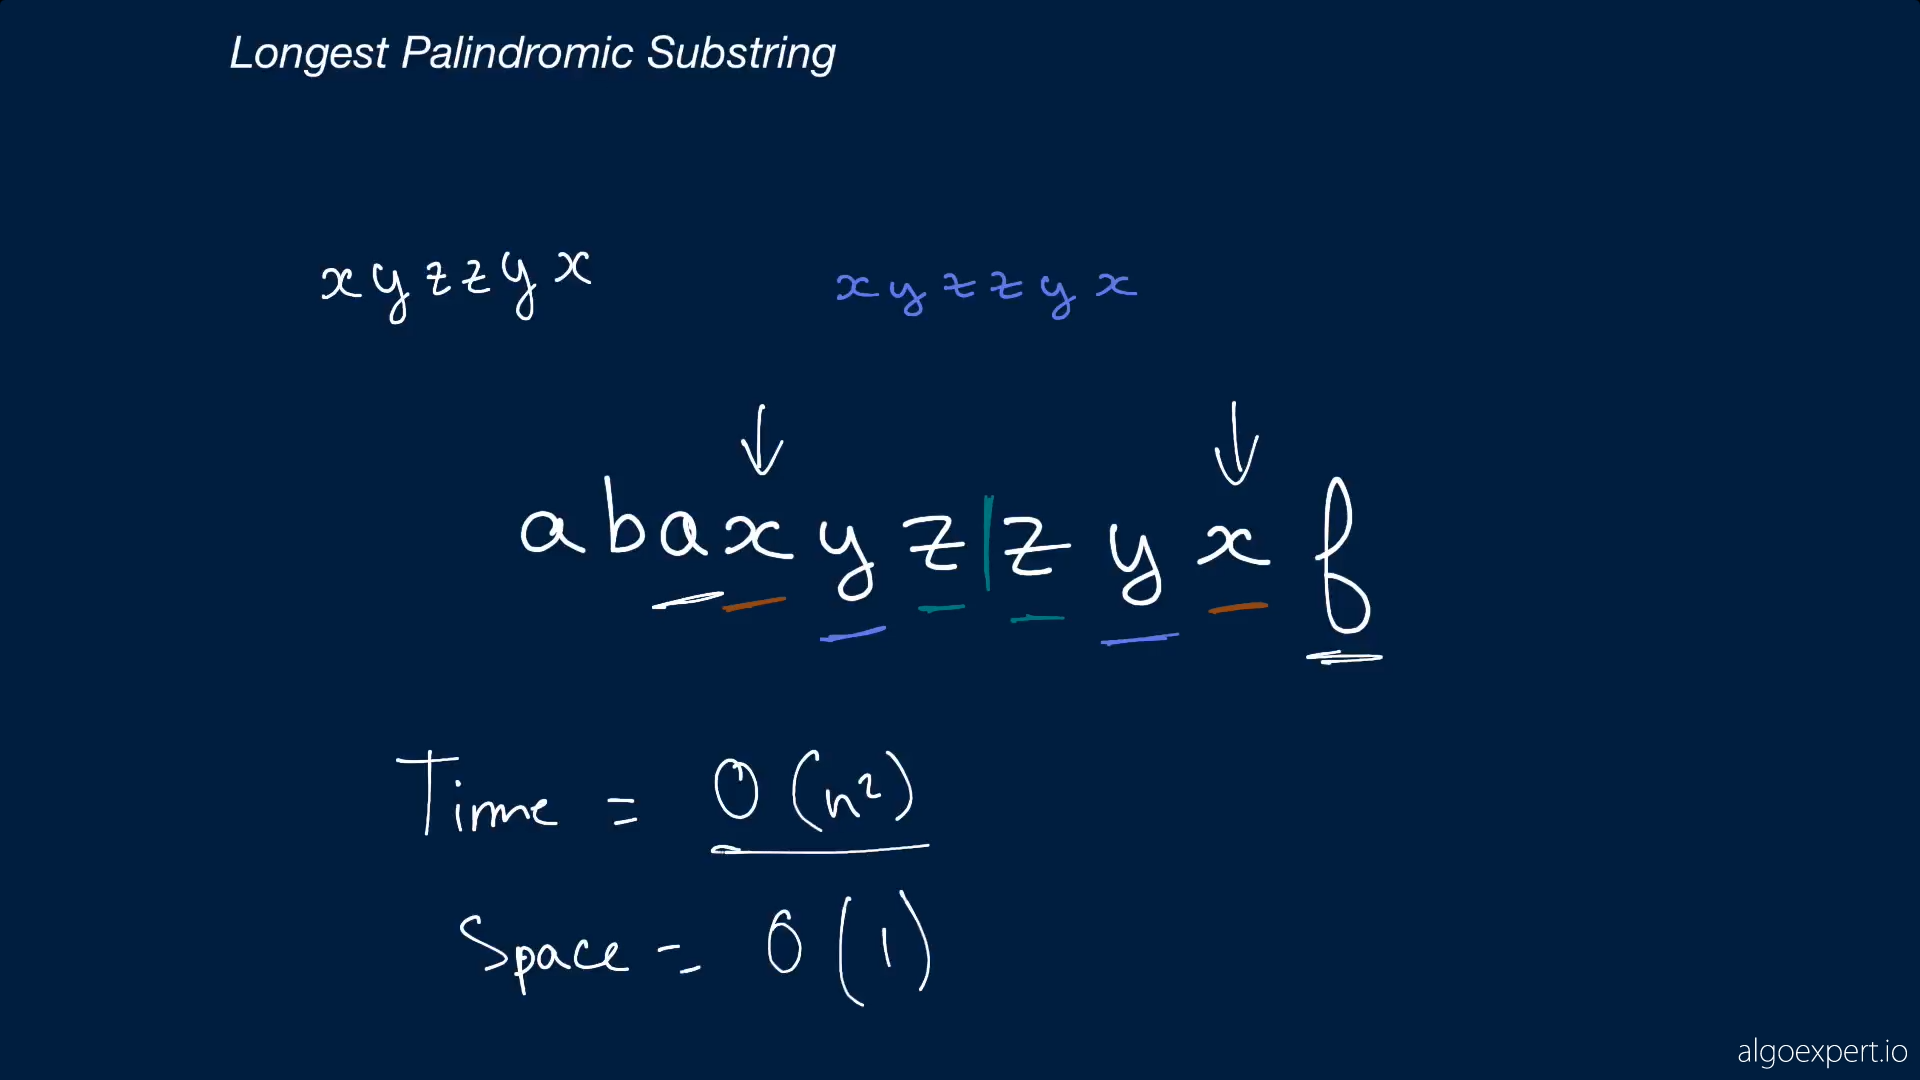 Longest Palindromic Substring
xyzzyx xyzzyx
abaxyz|zyxf
Time = O(n²)
Space = O(1)
algoexpert.io